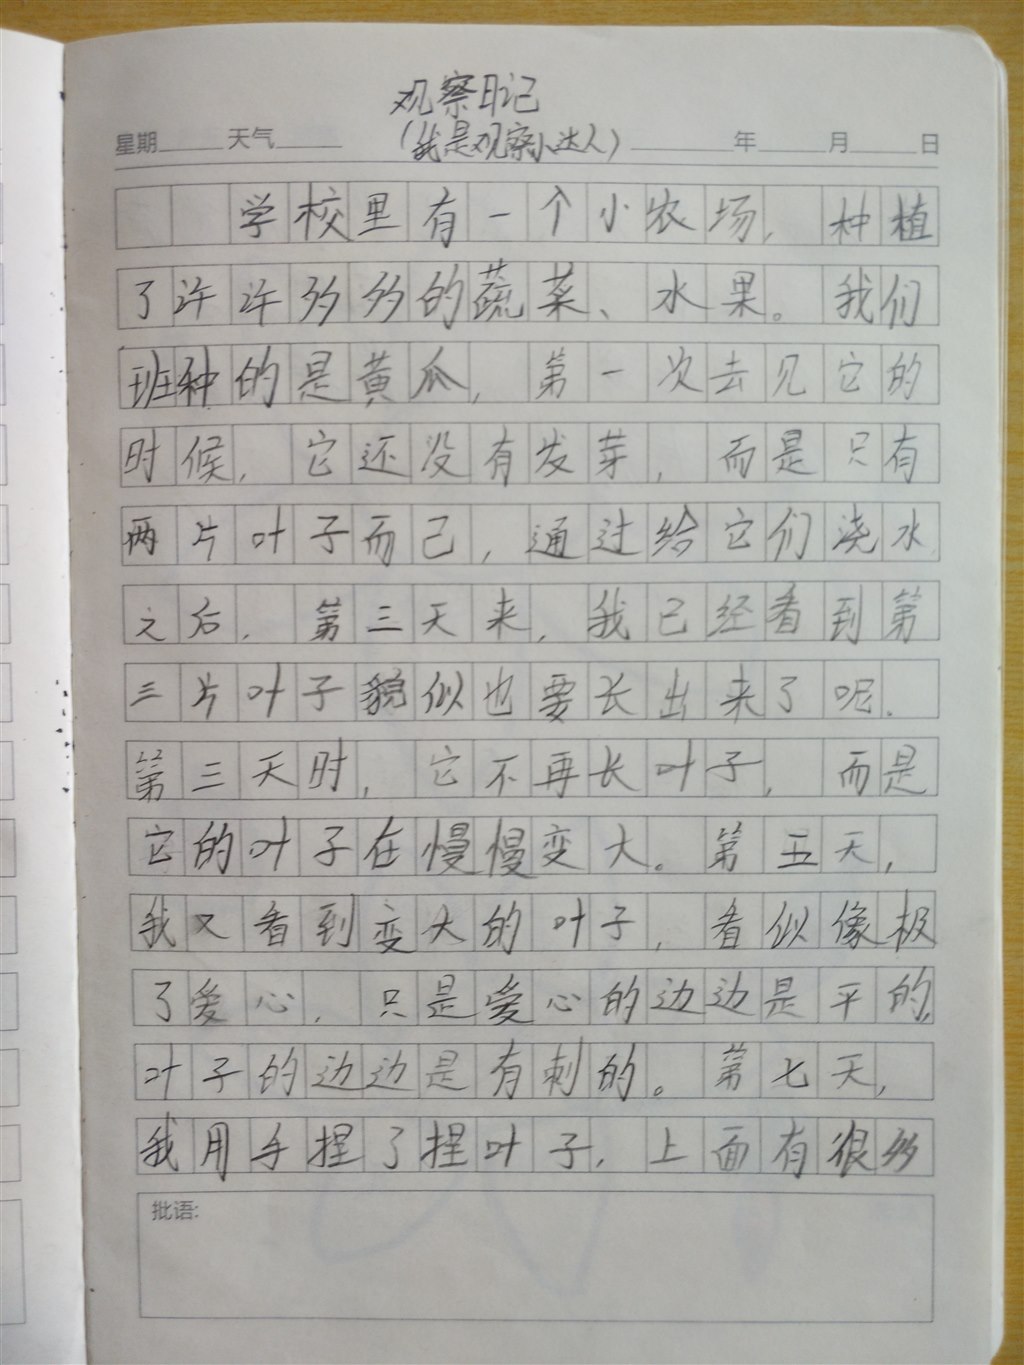 观察日记
星期 天气 (我是观察小达人) 年 月 日
学校里有一个小农场,种植
了许许多多的蔬菜、水果。我们
班种的是黄瓜,第一次去见它的
时候,它还没有发芽,而是只有
两片叶子而己,通过给它们浇水
之后,第三天来,我已经看到第
三片叶子貌似也要长出来了呢.
第三天时,它不再长叶子,而是
它的叶子在慢慢变大。第五天,
我又看到变大的叶子,看似像极
了爱心,只是爱心的边边是平的,
叶子的边边是有刺的。第七天,
我用手捏了捏叶子,上面有很多
批语: